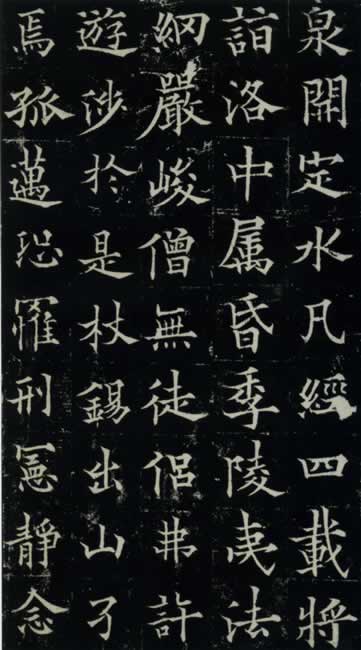 泉開定水凡經四載將
詣洛中属昏季陵夷法
網嚴峻僧無徒侶弗許
遊涉於是杖錫出山孑
焉孤邁恐罹刑憲靜念